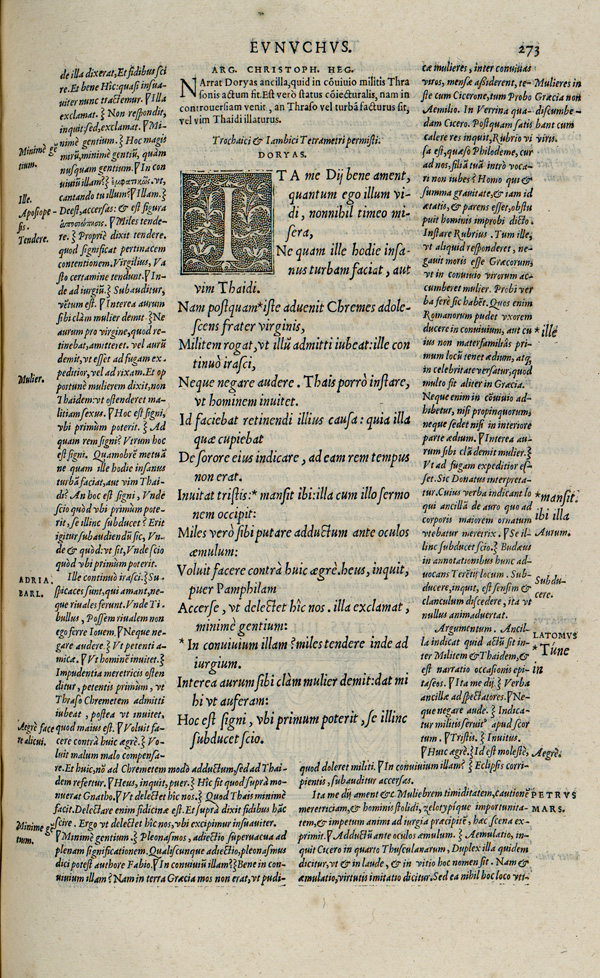 EVNVCHVS.
273
ARG. CHRISTOPH. HEG.
NArrat Doryas ancilla, quid in cōuiuio militis Thra
sonis actum sit. Est verò status cōiecturalis, nam in
controuersiam venit, an Thraso vel turbā facturus sit,
vel vim Thaidi illaturus.
Trochaici & Iambici Tetrametri permisti.
DORYAS.
ITA me Dij bene ament,
quantum ego illum vi-
di, nonnihil timeo mi-
sera,
Ne quam ille hodie insa-
nus turbam faciat, aut
vim Thaidi.
Nam postquam*iste aduenit Chremes adole-
scens frater virginis,
Militem rogat, vt illū admitti iubeat: ille con
tinuò irasci,
Neque negare audere. Thais porrò instare,
vt hominem inuitet.
Id faciebat retinendi illius causa: quia illa
quæ cupiebat
De sorore eius indicare, ad eam rem tempus
non erat.
Inuitat tristis:* mansit ibi: illa cum illo sermo
nem occipit:
Miles verò sibi putare adductum ante oculos
æmulum:
Voluit facere contrà huic ægrè. heus, inquit,
puer Pamphilam
Accerse, vt delectet hîc nos. illa exclamat,
minimè gentium:
* In conuiuium illam? miles tendere inde ad
iurgium.
Interea aurum sibi clàm mulier demit: dat mi
hi vt auferam:
Hoc est signi, vbi primum poterit, se illinc
subducet scio.
de illa dixerat, Et fidibus sci
re. Et bene Hîc: quasi insua-
uiter nunc tractemur. ¶ Illa
exclamat. ⁆ Non respondit,
inquit, sed, exclamat. ¶ Mi-
nimè gentium. ⁆ Hoc magis
mirū, minimè gentiū, quàm
nusquam gentium. ¶ In con
uiuiū illam?
cantando tu illum? ¶ Illam. ⁆
Deest, accersas: & est figura
¶ Miles tende-
re. ⁆ Propriè dixit tendere.
quod significat pertinacem
contentionem. Virgilius, Va
sto certamine tendunt. ¶ In-
de ad iurgiū. ⁆ Subauditur,
vētum est. ¶ Interea aurum
sibi clàm mulier demit. ⁆ Ne
aurum pro virgine, quod re-
tinebat, amitteret. vel aurū
demit, vt esset ad fugam ex-
peditior, vel ad rixam. Et op
portunè mulierem dixit, non
Thaidem: vt ostenderet ma-
litiam sexus. ¶ Hoc est signi,
vbi primùm poterit. ⁆ Ad
quam rem signi? Vtrum hoc
est signi. Quamobrē metuā
ne quam ille hodie insanus
turbam faciat, aut vim Thai-
di? An hoc est signi, Vnde
scio quòd vbi primum pote-
rit, se illinc subducet? Erit
igitur subaudiendū sic, Vn-
de & quòd: vt sit, Vnde scio
quòd vbi primum poterit.
Ille continuò irasci. ⁆ Su-
spicaces sunt, qui amant, ne-
que riuales ferunt. Vnde Ti-
bullus, Possem riualem non
ego ferre Iouem. ¶ Neque ne-
gare audere. ⁆ Vt petenti a-
mica. ¶ Vt hominē inuitet. ⁆
Impudentia meretricis osten
ditur, petentis primùm, vt
Thraso Chremetem admitti
iubeat, postea vt inuitet,
quod maius est. ¶ Voluit fa-
cere contrà huic ægrè. ⁆ Vo-
luit malum malo compensa-
re. Et huic, nō ad Chremetem modò adductum, sed ad Thai-
dem refertur. ¶ Heus, inquit, puer. ⁆ Hîc sit quod suprà mo-
nuerat Gnatho. ¶ Vt delectet hîc nos. ⁆ Quod Thais minimè
facit. Delectare enim fidicinæ est. Et suprà dixit fidibus hāc
scire. Ergo vt delectet hîc nos, vbi excipimur insuauiter.
¶ Minimè gentium. ⁆ Pleonasmos, adiectio superuacua ad
plenam significationem. Qualscunque adiectio, pleonasmus
dici potest authore Fabio. ¶ In conuiuiū illam? ⁆ Bene in con-
uiuium illam? Nam in terra Græcia mos non erat, vt pudi-
cæ mulieres, inter conuiuas
viros, mensæ assiderent, te-
ste cum Cicerone, tum Probo
Aemilio. In Verrina qua-
dam Cicero. Postquam satis
calere res inquit, Rubrio vi
sa est, quæso Philodeme, cur
ad nos, filiā tuā intrò voca-
ri non iubes? Homo qui &
summa grauitate, & iam id
ætatis, & parens esset, obstu
puit hominis improbi dicto.
Instare Rubrius. Tum ille,
vt aliquid responderet, ne-
gauit moris esse Græcorum,
vt in conuiuio virorum ac-
cumberet mulier. Probi ver
ba ferè sic habēt. Quos enim
Romanorum pudet vxorem
ducere in conuiuium, aut cu
ius non materfamiliâs pri-
mum locū tenet ædium, atq;
in celebritate versatur, quod
multo fit aliter in Græcia.
Neque enim in cōuiuio ad-
hibetur, nisi propinquorum,
neque sedet nisi in interiore
parte ædium. ¶ Interea au-
rum sibi clā demit mulier. ⁆
Vt ad fugam expeditior es-
set. Sic Donatus interpreta-
tur. Cuius verba indicant lo
qui ancillā de auro quo ad
corporis maiorem ornatum
vtebatur meretrix. ¶ Se il-
linc subducet scio. ⁆ Budæus
in annotationibus hunc ad-
uocans Terētij locum. Sub-
ducere, inquit, est sensim &
clanculum discedere, ita vt
nullus animaduertat.
Argumentum. Ancil-
la indicat quid actū sit in-
ter Militem & Thaidem, &
est narratio occasionis epi-
taseos. ¶ Ita me dij. ⁆ Verba
ancillæ ad spectatores. ¶ Ne-
que negare aude. ⁆ Indica-
tur militis seruit⁹ apud scor
tum. ¶ Tristis. ⁆ Inuitus.
¶ Hunc ægrè. ⁆ Id est molestè,
quod doleret militi. ¶ In conuiuium illam? ⁆ Eclipsis corri-
pientis, subauditur accersas.
Ita me dij ament &c. Muliebrem timiditatem, cautionē
meretriciam, & hominis stolidi, zelotypíque importunita-
tem, & impetum animi ad iurgia præcipitē, hac scena ex-
primit. ¶ Adductū ante oculos æmulum. ⁆ Aemulatio, in-
quit Cicero in quarto Thusculanarum, Duplex illa quidem
dicitur, vt & in laude, & in vitio hoc nomen sit. Nam &
æmulatio, virtutis imitatio dicitur. Sed ea nihil hoc loco vti-
Minimè gē
tium.
Ille.
Aposiope-
sis.
Tendere.
Mulier.
ADRIA.
BARL.
Aegrè face
re alicui.
Minimè gē
tium.
Mulieres in
Græcia non
discumbe-
bant cum
viris.
*ille
*mansit.
ibi illa
Aurum.
Subdu-
cere.
LATOMVS
*Tūne
in
Aegrè.
PETRVS
MARS.